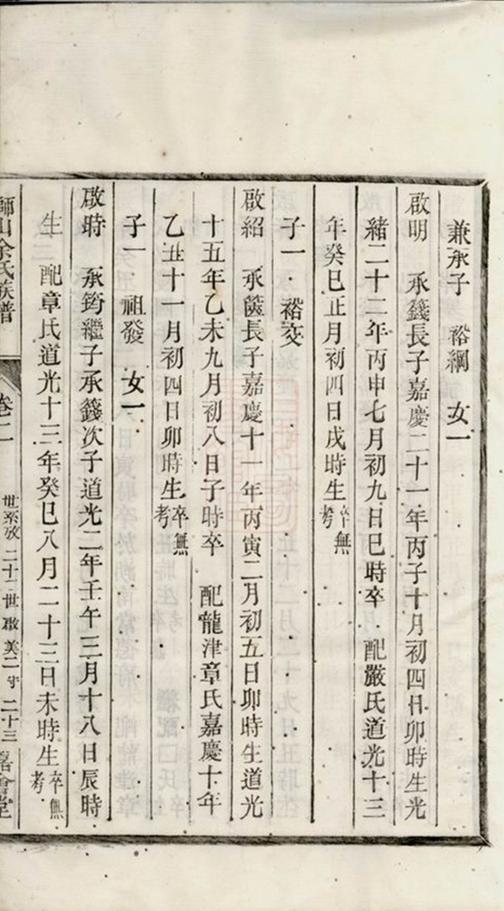 兼承子 裕綱 女一
啟明 承籛長子嘉慶二十一年丙子十月初四日卯時生光
緒二十二年丙申七月初九日巳時卒 配嚴氏道光十三
年癸巳正月初四日戌時生卒無考
子一 裕交
啟紹 承篋長子嘉慶十一年丙寅二月初五日卯時生道光
十五年乙未九月初八日子時卒 配龍津章氏嘉慶十年
乙丑十一月初四日卯時生卒無考
子一 祖發 女一
啟時 承筠繼子承籛次子道光二年壬午三月十八日辰時
生 配章氏道光十三年癸巳八月二十三日未時生卒無考
山余氏族譜 卷二 世系攷 二十二世 啟 美二守 二十三 會堂